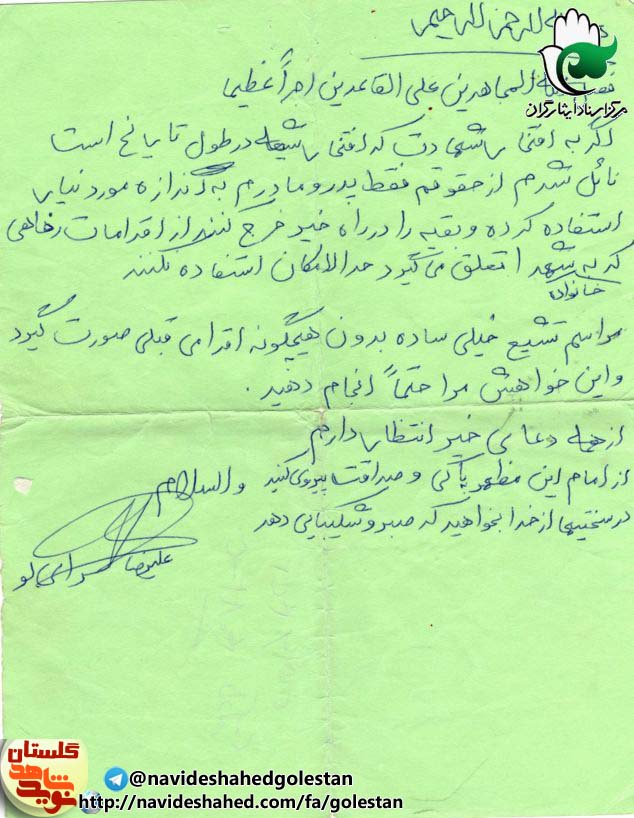 بسم الله الرحمن الرحیم
مرکز اسناد ایثارگران
فضل الله المجاهدین علی القاعدین اجراً عظیما
اگر به افتخار شهادت که افتخار شیعه در طول تاریخ است
نائل شدم از حقوقم فقط پدر و مادرم به اندازه مورد نیاز
استفاده کرده و بقیه را در راه خیر خرج کنند از اقدامات رفاهی
که به خانواده شهدا تعلق می گیرد حدالامکان استفاده نکنند
مراسم تشیع خیلی ساده بدون هیچگونه اقدامی قبلی صورت گیرد
و این خواهش مرا حتماً انجام دهید .
از همه دعای خیر انتظار دارم
از امام این مظهر پاکی و صداقت پیروی کنید والسلام
در سختیها از خدا بخواهید که صبر و شکیبایی دهد
علیرضا
گلستان
نوید شاهد
@navideshahedgolestan
http://navideshahed.com/fa/golestan